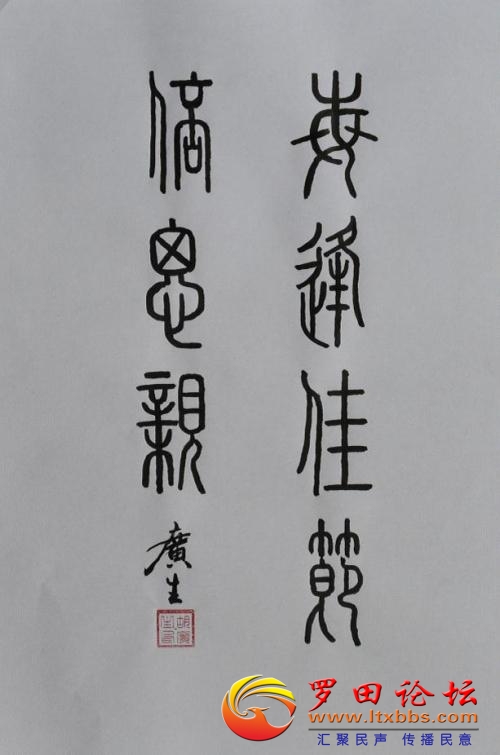 每逢佳節
倍思親
廣生
罗田论坛
www.ltxbbs.com
汇聚民声 传播民意